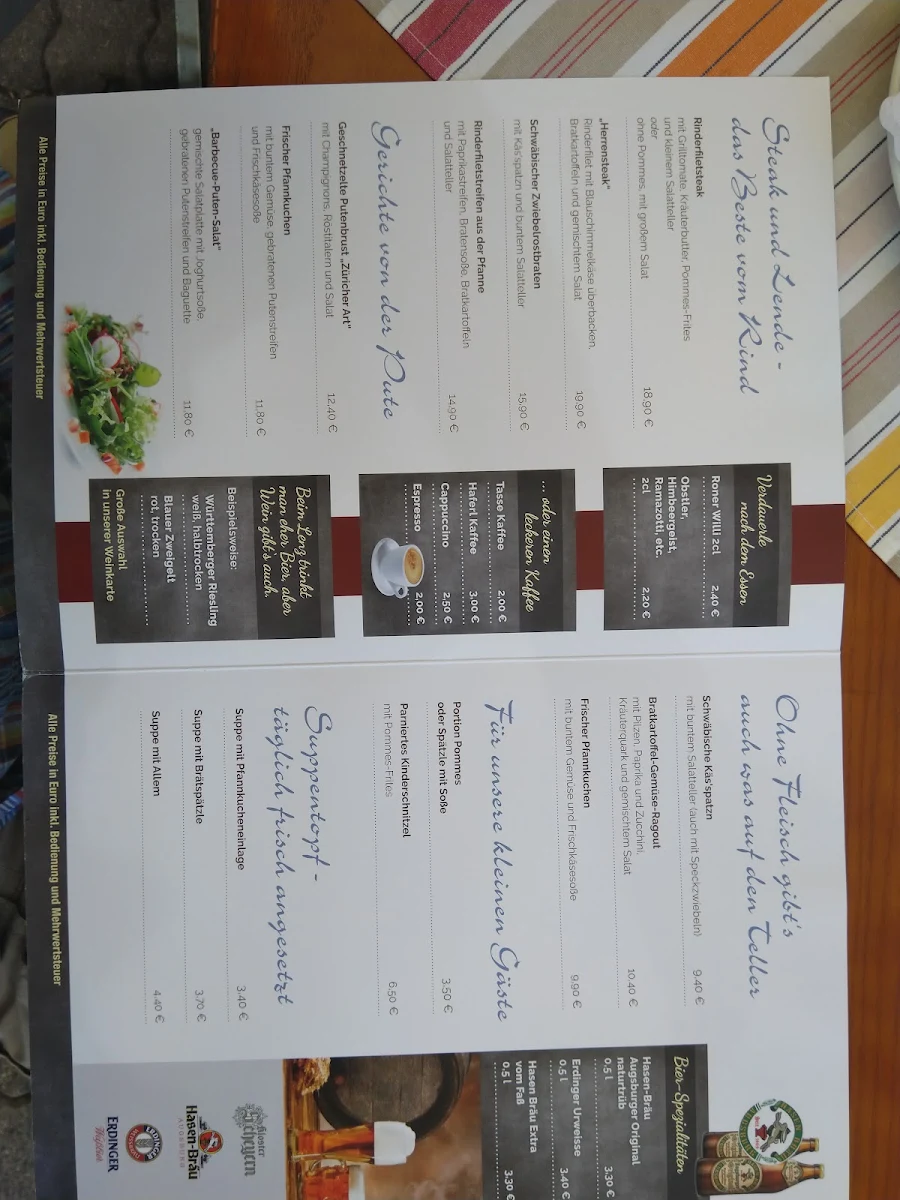 Steak und Lende -
das Beste vom Rind
Rinderfiletsteak
mit Grilltomate, Kräuterbutter, Pommes-Frites
und kleinem Salatteller
oder
ohne Pommes, mit großem Salat
18,90 €
„Herrensteak“
Rinderfilet mit Blauschimmelkäse überbacken,
Bratkartoffeln und gemischtem Salat
19,90 €
Schwäbischer Zwiebelrostbraten
mit Käs'spatzn und buntem Salatteller
15,90 €
Rinderfiletstreifen aus der Pfanne
mit Paprikastreifen, Bratensoße, Bratkartoffeln
und Salatteller
14,90 €
Gerichte von der Pute
Geschnetzelte Putenbrust „Züricher Art“
mit Champignons, Röstitalern und Salat
12,40 €
Frischer Pfannkuchen
mit buntem Gemüse, gebratenen Putenstreifen
und Frischkäsesoße
11,80 €
„Barbecue-Puten-Salat“
gemischte Salatplatte mit Joghurtsoße,
gebratenen Putenstreifen und Baguette
11,80 €
Alle Preise in Euro inkl. Bedienung und Mehrwertsteuer
Verdauerle
nach dem Essen
Roner Willi 2cl
2,40 €
Obstler,
Himbeergeist,
Ramazotti, etc.
2cl
2,20 €
... oder einen
leckeren Kaffee
Tasse Kaffee 2,00 €
Haferl Kaffee 3,00 €
Cappuccino 2,50 €
Espresso 2,00 €
Beim Lenz trinkt
man eher Bier, aber
Wein gibt's auch.
Beispielsweise:
Württemberger Riesling
weiß, halbtrocken
Blauer Zweigelt
rot, trocken
Große Auswahl
in unserer Weinkarte
Ohne Fleisch gibt's
auch was auf den Teller
Schwäbische Käs'spatzn
mit buntem Salatteller (auch mit Speckzwiebeln)
9,40 €
Bratkartoffel-Gemüse-Ragout
mit Pilzen, Paprika und Zucchini,
Kräuterquark und gemischtem Salat
10,40 €
Frischer Pfannkuchen
mit buntem Gemüse und Frischkäsesoße
9,90 €
Für unsere kleinen Gäste
Portion Pommes
oder Spätzle mit Soße
3,50 €
Paniertes Kinderschnitzel
mit Pommes-Frites
6,50 €
Suppentopf -
täglich frisch angesetzt
Suppe mit Pfannkucheneinlage
3,40 €
Suppe mit Brätspätzle
3,70 €
Suppe mit Allem
4,40 €
Alle Preise in Euro inkl. Bedienung und Mehrwertsteuer
Bier-Spezialitäten
Hasen-Bräu
Augsburger Original
naturtrüb
0,5 l
3,30 €
Erdinger Urweisse
0,5 l
3,40 €
Hasen Bräu Extra
vom Faß
0,5 l
3,30 €
Kloster
Scheyern
Hasen-Bräu
AUGSBURG
ERDINGER
ERDINGER
Weißbier